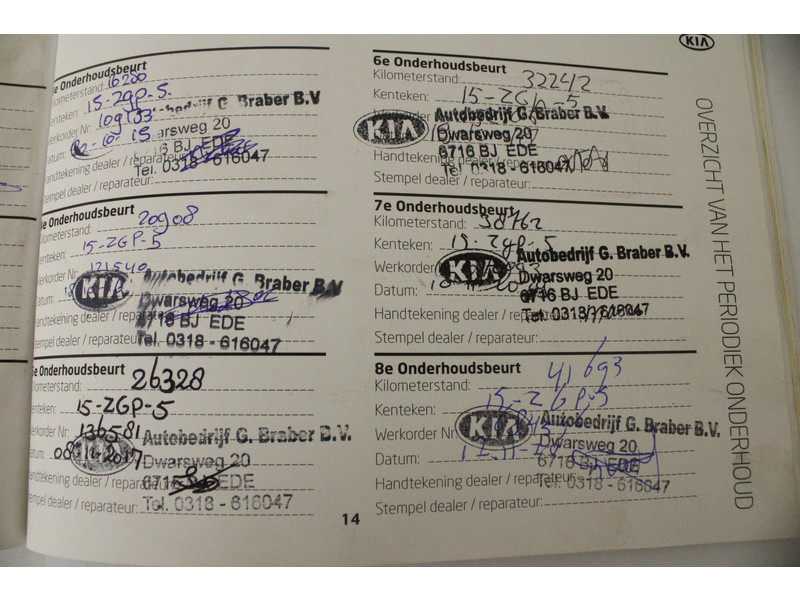 KIA
OVERZICHT VAN HET PERIODIEK ONDERHOUD
e Onderhoudsbeurt
Kilometerstand: 16200
Kenteken: 15-ZGP-5.
Werkorder Nr:
Datum: -10-15
G. Braber B.V.
Dwarsweg 20
6716 BJ EDE
Tel. 0318-616047
Handtekening dealer / reparateur:
Stempel dealer / reparateur:
e Onderhoudsbeurt
Kilometerstand: 20908
Kenteken: 15-ZGP-5
Werkorder Nr: 121540
Datum:
KIA
Autobedrijf G. Braber B.V.
Dwarsweg 20
6716 BJ EDE
Tel. 0318 - 616047
Handtekening dealer / reparateur:
Stempel dealer / reparateur:
e Onderhoudsbeurt
Kilometerstand: 26328
Kenteken: 15-ZGP-5
Werkorder Nr: 136581
Datum:
Autobedrijf G. Braber B.V.
Dwarsweg 20
6716 BJ EDE
Tel. 0318 - 616047
Handtekening dealer / reparateur:
Stempel dealer / reparateur:
6e Onderhoudsbeurt
Kilometerstand: 32242
Kenteken: 15-ZGP-5
KIA
Autobedrijf G. Braber B.V.
Dwarsweg 20
6716 BJ EDE
Tel. 0318 - 616047
Handtekening dealer / reparateur:
Stempel dealer / reparateur:
7e Onderhoudsbeurt
Kilometerstand: 38762
Kenteken: 15-ZGP-5
Werkorder
Datum:
KIA
Autobedrijf G. Braber B.V.
Dwarsweg 20
6716 BJ EDE
Tel. 0318 - 616047
Handtekening dealer / reparateur:
Stempel dealer / reparateur:
8e Onderhoudsbeurt
Kilometerstand: 41693
Kenteken: 15-ZGP-5
Werkorder Nr:
Datum:
KIA
Autobedrijf G. Braber B.V.
Dwarsweg 20
6716 BJ EDE
Tel. 0318 - 616047
Handtekening dealer / reparateur:
Stempel dealer / reparateur:
14